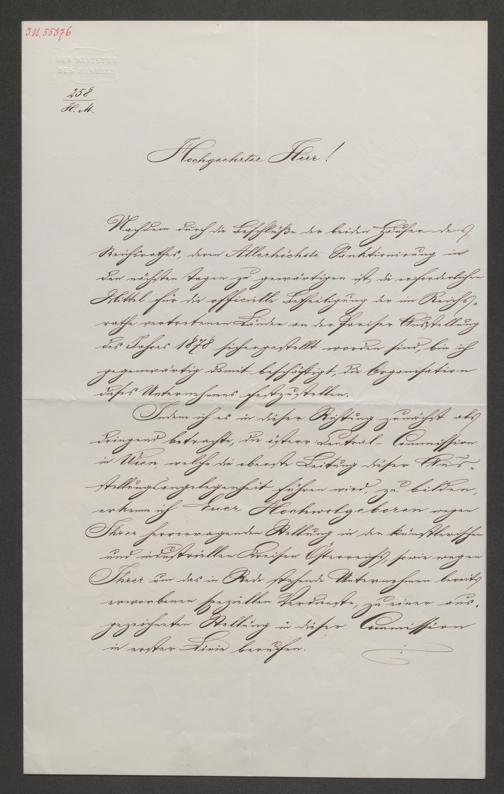 I.N. 55376
DER MINISTER
DES HANDELS
258
H. M.
Hochgeehrter Herr!
Nachdem durch die Beschlüße der beiden Häuser des
Reichsrathes, deren Allerhöchste Sanktionirung in
den nächsten Tagen zu gewärtigen ist, die erforderlichen
Mittel für die officielle Betheiligung der im Reichs-
rathe vertretenen Länder an der Pariser Ausstellung
des Jahres 1878 sichergestellt worden sind, bin ich
gegenwärtig damit beschäftigt, die Organisation
dieses Unternehmens festzustellen.
Indem ich es in dieser Richtung zunächst als
dringend betrachte, die österr. Central-Commission
in Wien, welche die oberste Leitung dieser Aus-
stellungsangelegenheit führen wird, zu bilden,
erkenne ich Euer Hochwolgeboren wegen
Ihrer hervorragenden Stellung in den künstlerischen
und industriellen Kreisen Österreichs, sowie wegen
Ihrer um das in Rede stehende Unternehmen bereits
erworbenen speziellen Verdienste, zu einer aus-
gezeichneten Stellung in dieser Commission
in erster Linie berufen.